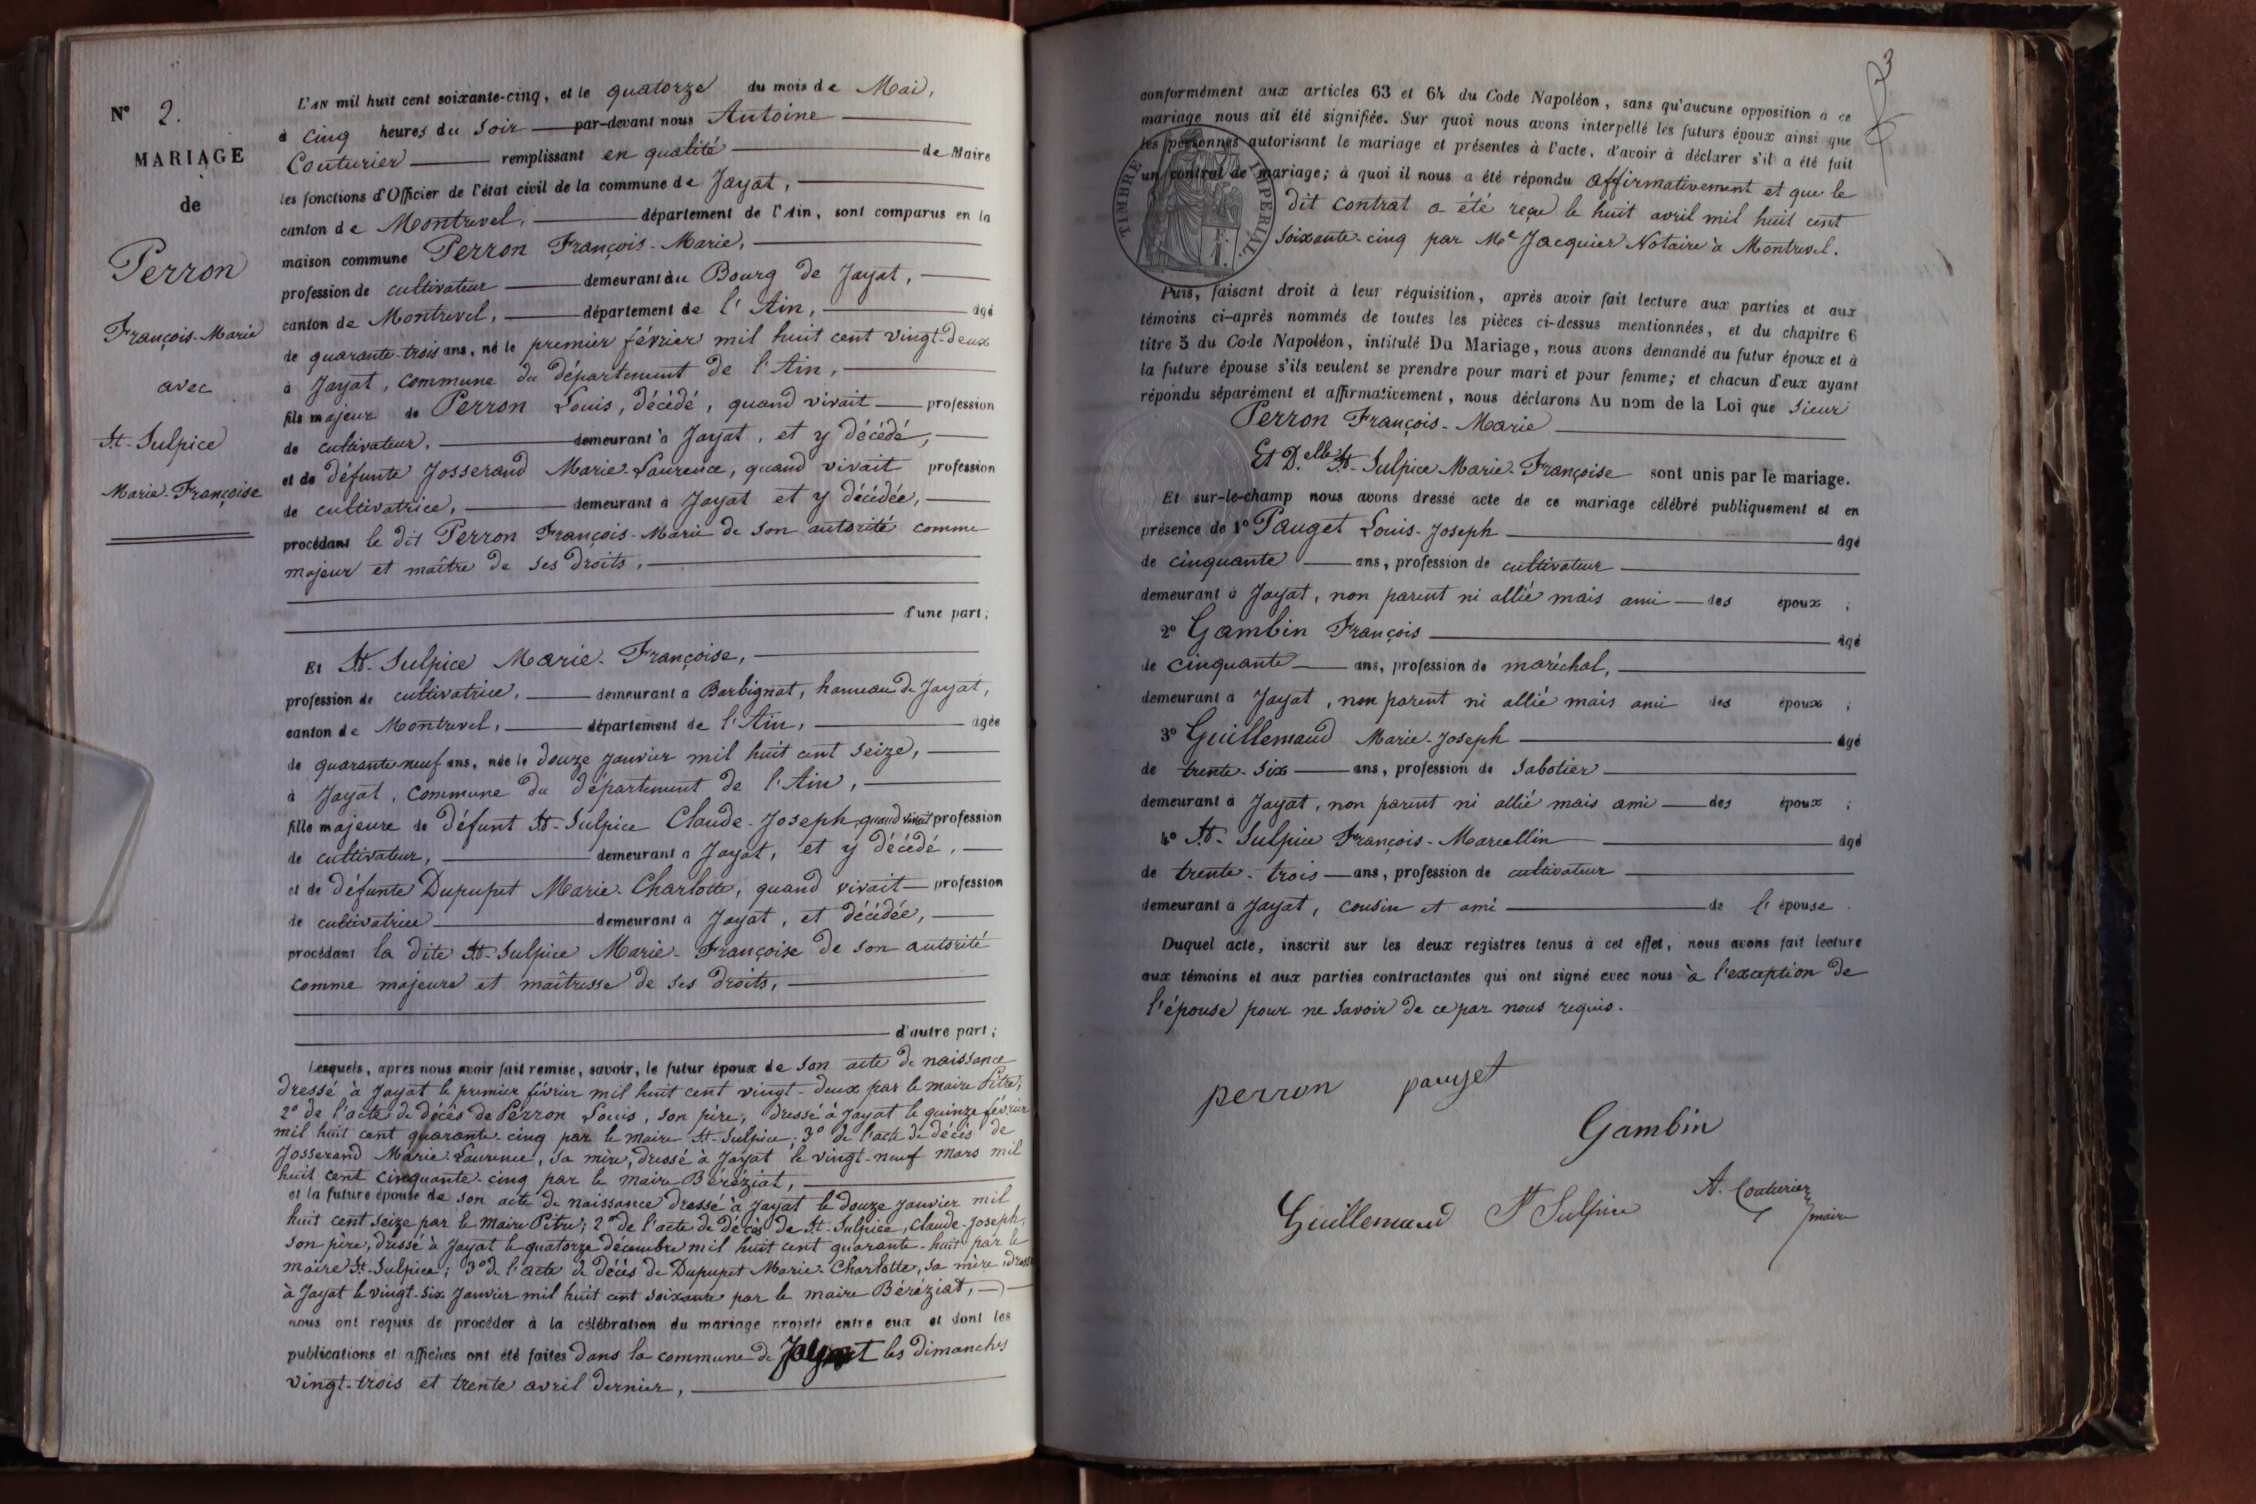 N° 2.
MARIAGE
de
Perron
François-Marie
avec
St-Sulpice
Marie-Françoise
L'AN mil huit cent soixante-cinq, et le quatorze du mois de Mai,
à cinq heures du soir par-devant nous Antoine
Couturier remplissant en qualité de Maire
les fonctions d'Officier de l'état civil de la commune de Jayat,
canton de Montrevel, département de l'Ain, sont comparus en la
maison commune Perron François-Marie,
profession de cultivateur demeurant au Bourg de Jayat,
canton de Montrevel, département de l'Ain, âgé
de quarante-trois ans, né le premier février mil huit cent vingt-deux
à Jayat, commune du département de l'Ain,
fils majeur de Perron Louis, décédé, quand vivait profession
de cultivateur, demeurant à Jayat, et y décédé,
et de défunte Josserand Marie-Laurence, quand vivait profession
de cultivatrice, demeurant à Jayat et y décédée,
procédant le dit Perron François-Marie de son autorité comme
majeur et maître de ses droits,
d'une part;
Et St-Sulpice Marie-Françoise,
profession de cultivatrice, demeurant à Barbignat, hameau de Jayat,
canton de Montrevel, département de l'Ain, âgée
de quarante-neuf ans, née le douze janvier mil huit cent seize,
à Jayat, commune du département de l'Ain,
fille majeure de défunt St-Sulpice Claude-Joseph, quand vivait profession
de cultivateur, demeurant à Jayat, et y décédé,
et de défunte Dupupet Marie-Charlotte, quand vivait profession
de cultivatrice demeurant à Jayat, et décédée,
procédant la dite St-Sulpice Marie-Françoise de son autorité
comme majeure et maîtresse de ses droits,
d'autre part;
Lesquels, après nous avoir fait remise, savoir, le futur époux de son acte de naissance
dressé à Jayat le premier février mil huit cent vingt-deux par le maire Pitre;
2° de l'acte de décès de Perron Louis, son père, dressé à Jayat le quinze février
mil huit cent quarante-cinq par le maire St-Sulpice; 3° de l'acte de décès de
Josserand Marie-Laurence, sa mère, dressé à Jayat le vingt-neuf mars mil
huit cent cinquante-cinq par le maire Béréziat,
et la future épouse de son acte de naissance dressé à Jayat le douze janvier mil
huit cent seize par le maire Pitre; 2° de l'acte de décès de St-Sulpice, Claude-Joseph,
son père, dressé à Jayat le quatorze décembre mil huit cent quarante-huit par le
maire St-Sulpice; 3° de l'acte de décès de Dupupet Marie-Charlotte, sa mère dressé
à Jayat le vingt-six janvier mil huit cent soixante par le maire Béréziat,
nous ont requis de procéder à la célébration du mariage projeté entre eux et dont les
publications et affiches ont été faites dans la commune de Jayat les dimanches
vingt-trois et trente avril dernier,
3
conformément aux articles 63 et 64 du Code Napoléon, sans qu'aucune opposition à ce
mariage nous ait été signifiée. Sur quoi nous avons interpellé les futurs époux ainsi que
les personnes autorisant le mariage et présentes à l'acte, d'avoir à déclarer s'il a été fait
un contrat de mariage; à quoi il nous a été répondu affirmativement et que le
dit contrat a été reçu le huit avril mil huit cent
soixante-cinq par Me Jacquier Notaire à Montrevel.
TIMBRE IMPÉRIAL
Puis, faisant droit à leur réquisition, après avoir fait lecture aux parties et aux
témoins ci-après nommés de toutes les pièces ci-dessus mentionnées, et du chapitre 6
titre 5 du Code Napoléon, intitulé Du Mariage, nous avons demandé au futur époux et à
la future épouse s'ils veulent se prendre pour mari et pour femme; et chacun d'eux ayant
répondu séparément et affirmativement, nous déclarons Au nom de la Loi que sieur
Perron François-Marie
Et D.elle St-Sulpice Marie-Françoise sont unis par le mariage.
Et sur-le-champ nous avons dressé acte de ce mariage célébré publiquement et en
présence de 1° Pauget Louis-Joseph âgé
de cinquante ans, profession de cultivateur
demeurant à Jayat, non parent ni allié mais ami des époux;
2° Gambin François âgé
de cinquante ans, profession de maréchal,
demeurant à Jayat, non parent ni allié mais ami des époux;
3° Guillemaud Marie-Joseph âgé
de trente-six ans, profession de sabotier
demeurant à Jayat, non parent ni allié mais ami des époux;
4° St-Sulpice François-Marcellin âgé
de trente-trois ans, profession de cultivateur
demeurant à Jayat, cousin et ami de l'épouse.
Duquel acte, inscrit sur les deux registres tenus à cet effet, nous avons fait lecture
aux témoins et aux parties contractantes qui ont signé avec nous à l'exception de
l'épouse pour ne savoir de ce par nous requis.
perron pauget
Gambin
Guillemaud St Sulpice A. Couturier
maire